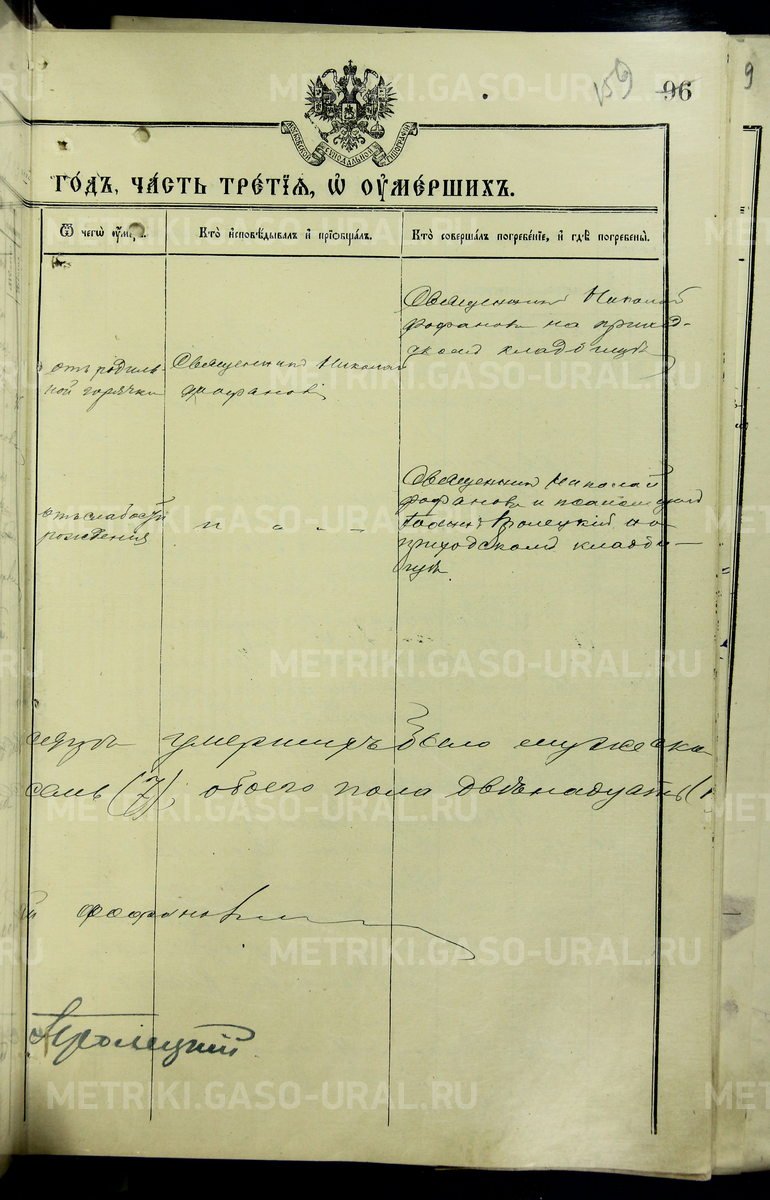 159 96
МОСКОВСКОЙ СѴНОДАЛЬНОЙ ТИПОГРАФІИ
ГО́ДЪ, ЧА́СТЬ ТРЕ́ТІѦ, Ѡ҆ ОУ҆МЕ́РШИХЪ.
Ѿ чегѡ̀ ᲂу҆́ме
Кто̀ и҆сповѣ́дывалъ и҆ прїѡбща́лъ.
Кто̀ соверша́лъ погребе́нїе, и҆ гдѣ̀ погребены̀.
отъ родиль-
ной горячки
Священникъ Николай
Фофановъ
Священникъ Николай
Фофановъ на приход-
скомъ кладбищѣ
отъ слабости
рожденія
Священникъ Николай
Фофановъ и псаломщикъ
на
приходскомъ кладби-
щѣ.
умершихъ было мужеска
семь (7), обоего пола двѣнадцать (1
Фофановъ
METRIKI.GASO-URAL.RU